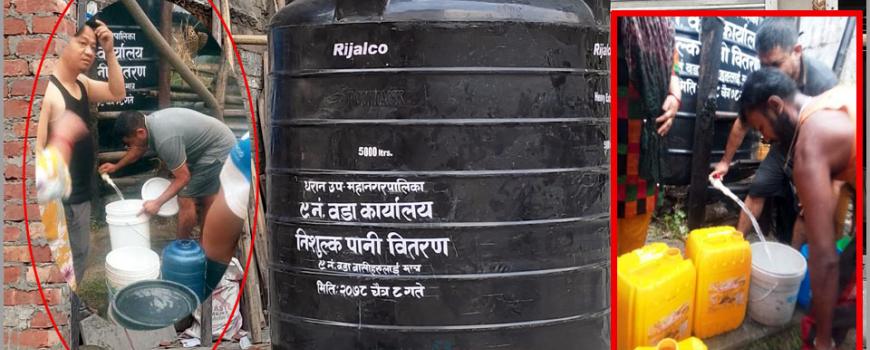 पालिका
कार्यालय
नी वितरण
Rijalco
5000 ltrs.
धरान उप-महानगरपालिका
९ नं. वडा कार्यालय
निशुल्क पानी वितरण
९ नं. वडा बासीहरुलाई मात्र
मितिः२०७८ चैत्र ८ गते
Rijalco